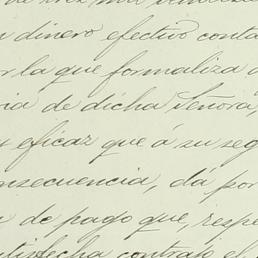 dinero efectivo conta
or la que formaliza a
ria de dicha Señora,
eficaz que á su seg
nsecuencia, dá por
de pago que, respe
tisfecha contrato el